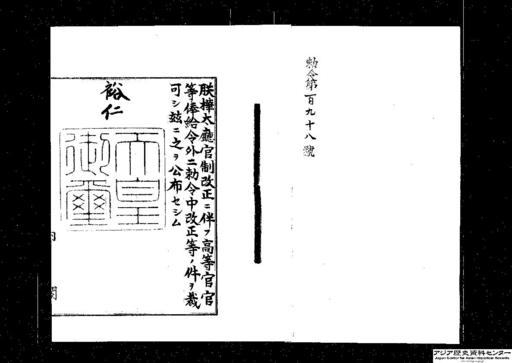 勅令第百九十八號
朕樺太廳官制改正ニ伴フ高等官官
等俸給令外二勅令中改正等ノ件ヲ裁
可シ玆ニ之ヲ公布セシム
裕仁
天皇
御璽
内
閣
アジア歴史資料センター
Japan Center for Asian Historical Records